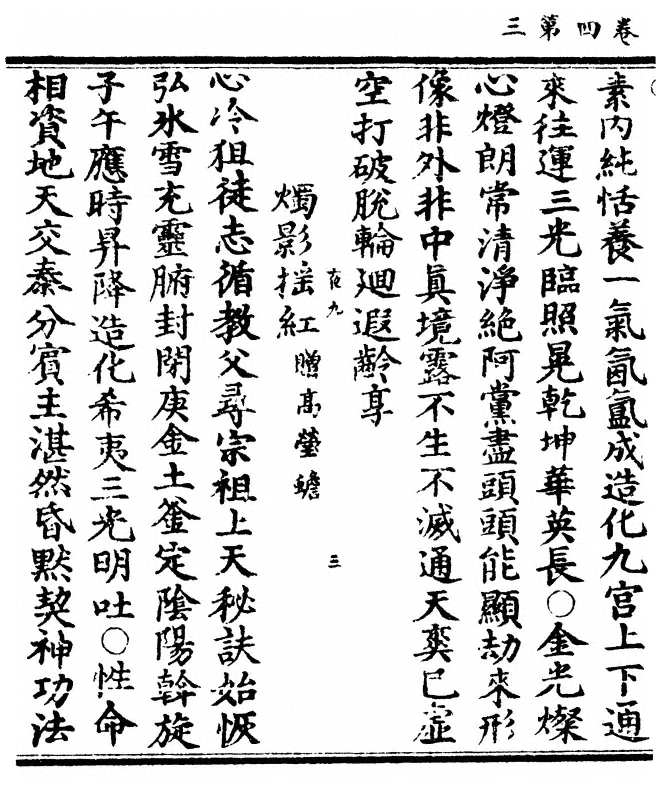 卷四第三
素內純恬養一氣氤氳成造化九宮上下通
來往運三光臨照晃乾坤華英長○金光燦
心燈朗常清淨絕阿黨盡頭頭能顯劫來形
像非外非中真境露不生不滅通天奕已虛
空打破脫輪迴遐齡享
夜九
三
燭影摇紅贈高瑩蟾
心冷狙徒志循教父尋宗祖上天秘訣始恢
弘氷雪充靈腑封閉庚金土釜定陰陽斡旋
子午應時昇降造化希夷三光明吐○性命
相資地天交泰分賓主湛然昏默契神功法